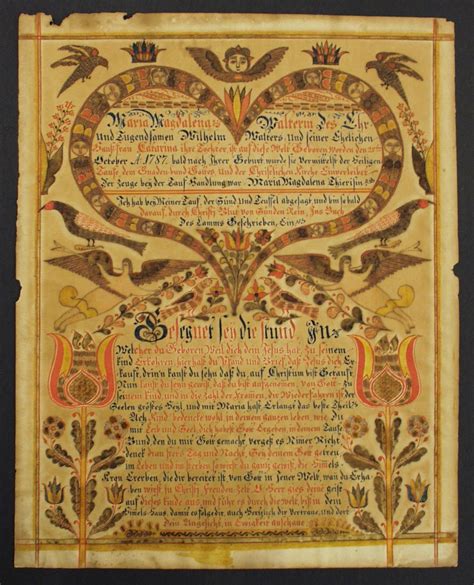 Maria Magdalena: Walterin Des Ehr
und Tugendsamen Wilhelm Walters und seiner Ehelichen
Hausfrau Catarina ihr Tochter ist auf diese Welt Geboren worden den
October A. 1787. bald nach Ihrer Geburt wurde sie Vermittelst der Heiligen
Taufe dem Gnaden bund Gottes und der Christlichen Kirche Einverleibet
Der Zeuge bei der Tauf Handlung war Maria Magdalena Thiersin
Ich hab bey Meiner Tauf, der Sünd und Teuffel abgesagt, und bin so bald
darauf, durch Christi Blut von Sünden Rein, Ins Buch
Des Lamms Geschrieben, Ein
Gesegnet sey die stund, In
Welcher du Geboren Weil dich dem Jesus hat, Zu seinem
Kind
kauft, drin'n kanst du sehn daß du, auf Christum bist Getauft
Nun kanst du seyn gewiß, daß du bist aufgenomen, von Gott Zu
seinem Kind, und in die Zahl der Fromen, die Wiederfahren ist der
Seelen gröstes Heyl, und mit Maria hast, Erlangt das beste Theil
Ach Kind bedencke wohl, in deinem gantzen leben, wie du
mit Leib und Seel dich hast Gott Ergeben, in deinem Taufe
Bund den du mit Gott gemacht, vergeß es Nimer Nicht,
denck dran hers Tag und Nacht, Sey deinem Gott getreu
im Leben und im sterben so wirst du gantz gewiß, die Himels
Kron Ererben, die dir bereitet ist von Gott in jener Welt, wan du
wirst in Christi Freuden Zelt
auf dieses Kinde aus, und führe es durch die welt, bis in dein
Himels Haus, damit es folge dir, auch Hertzlich dir Vertraue, und dort
Dein Angesicht, in Ewigkeit anschaue